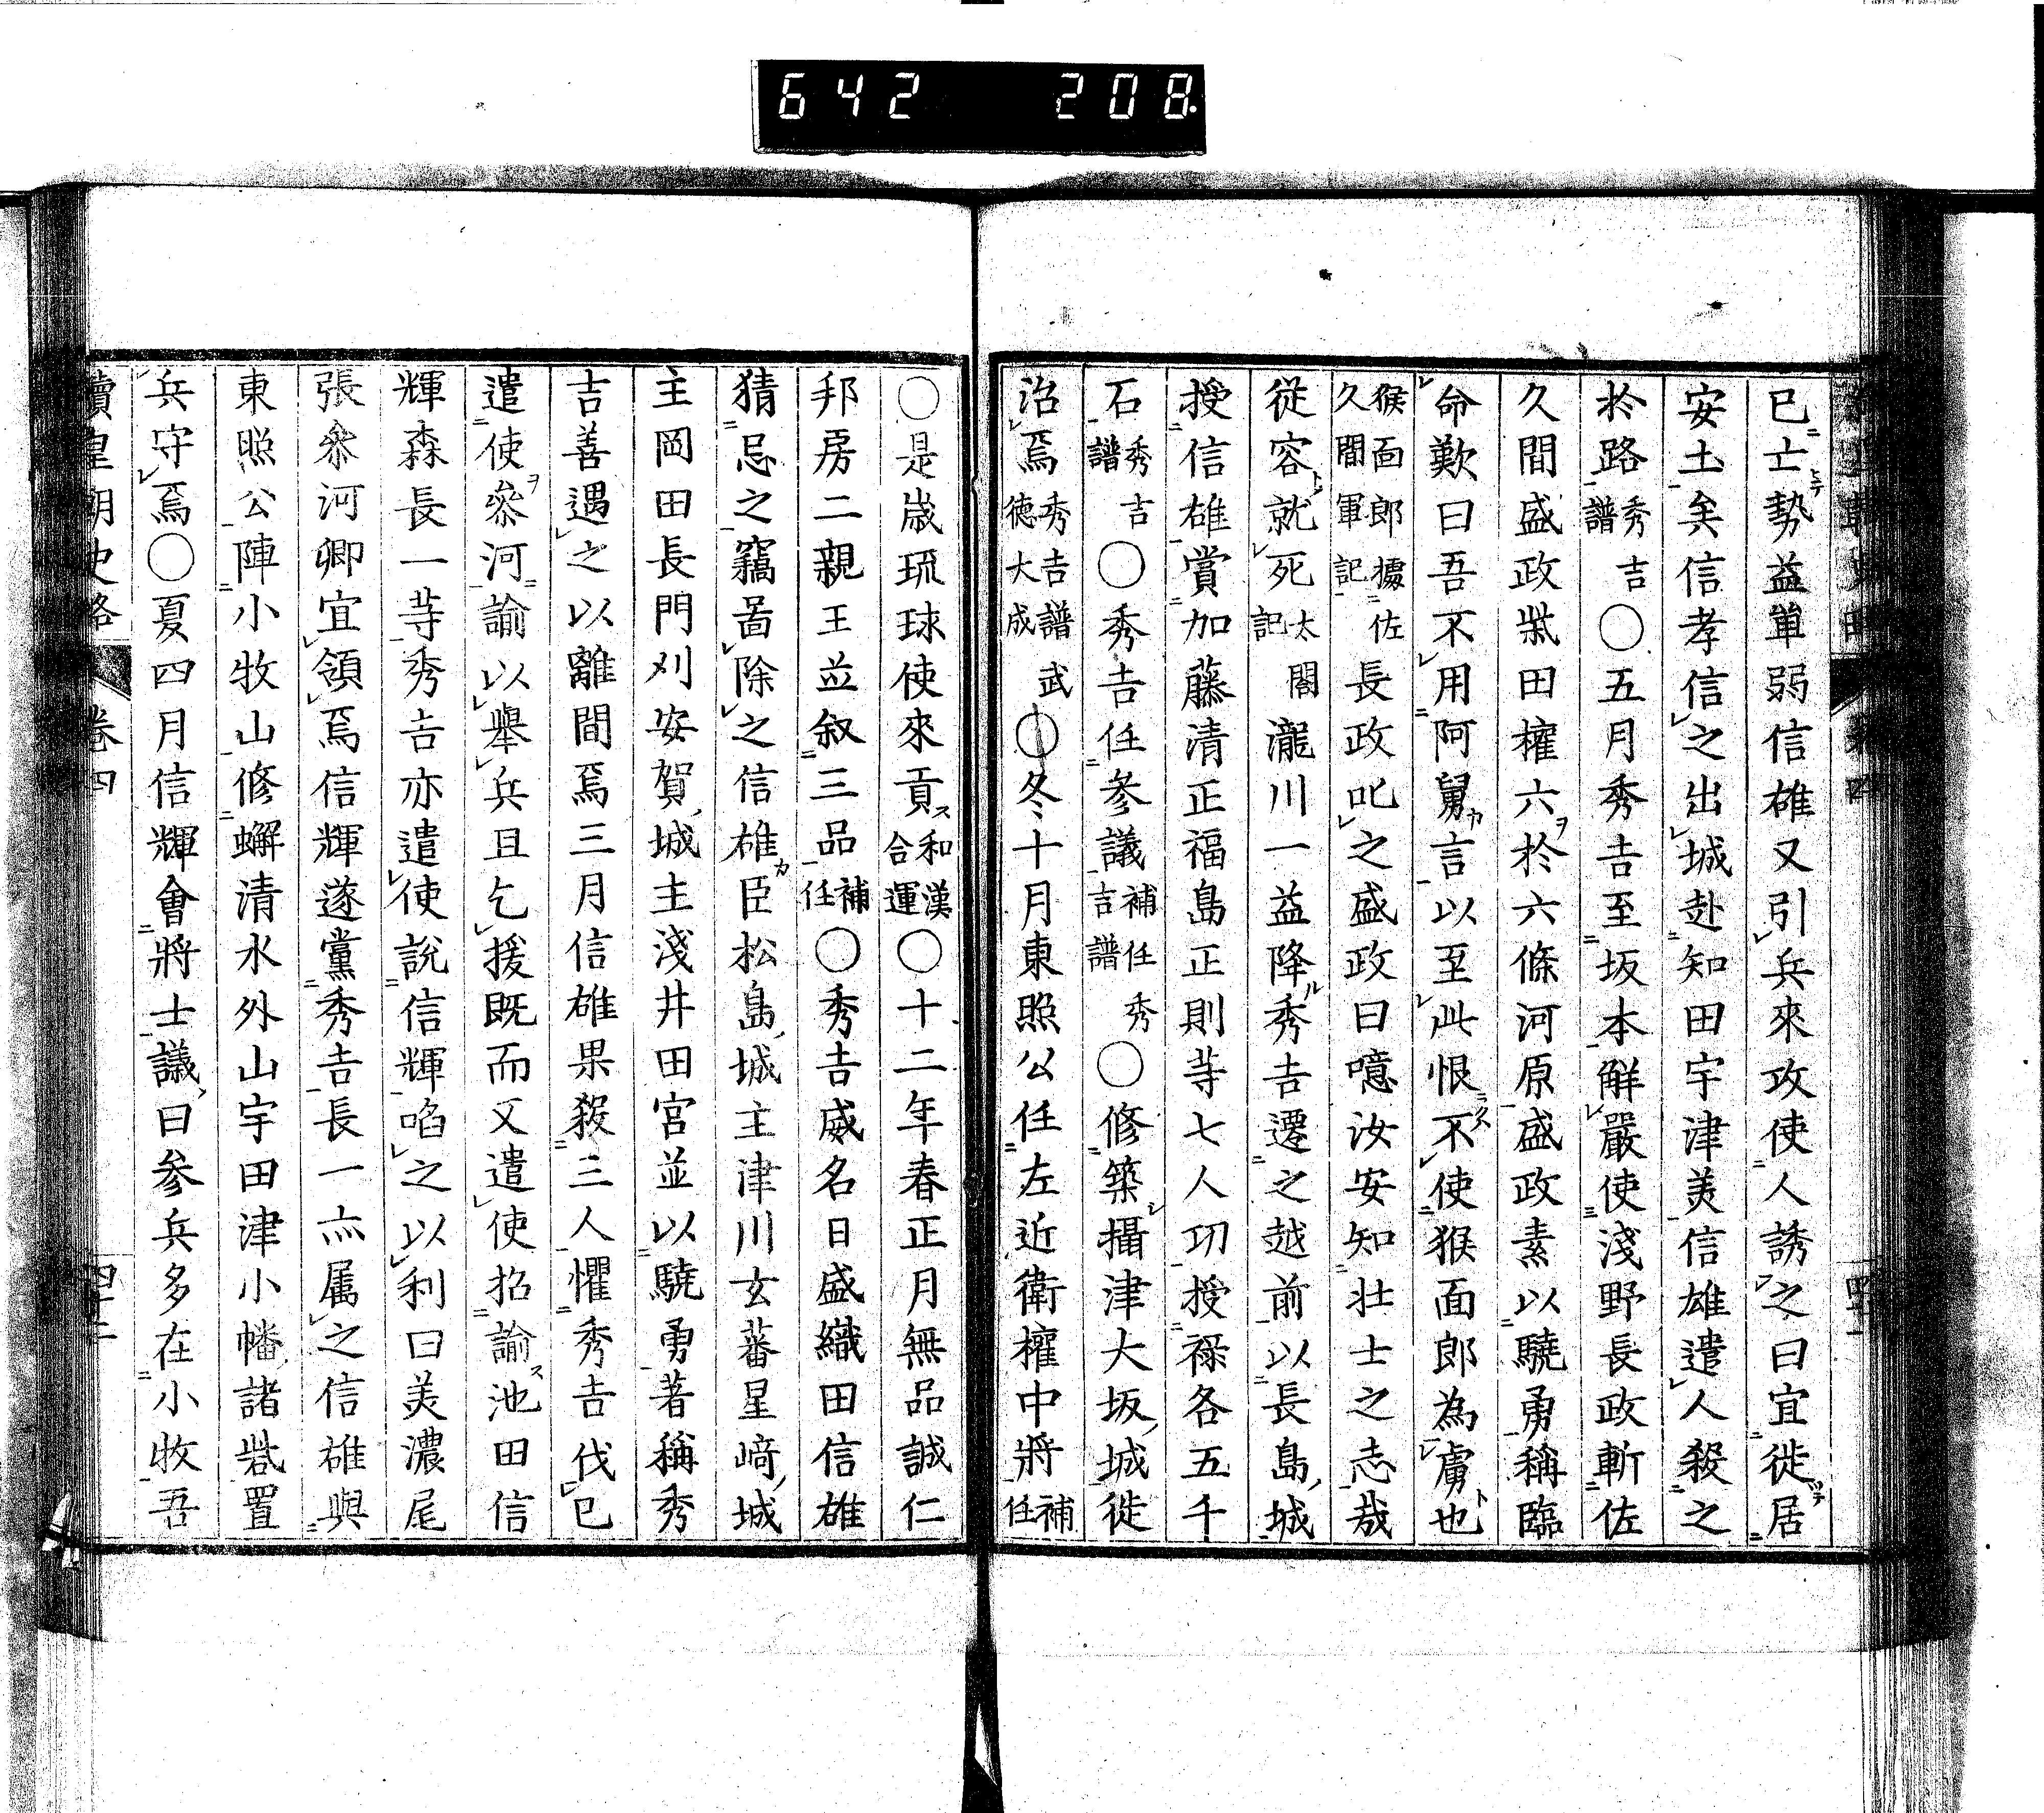 642 208.
已亡勢益單弱信雄又引兵來攻使人誘之曰宜徙居
安土矣信孝信之出城赴知田宇津美信雄遣人殺之
於路秀吉譜○五月秀吉至坂本解嚴使淺野長政斬佐
久間盛政柴田權六於六條河原盛政素以驍勇稱臨
命歎曰吾不用阿舅言以至此恨不使猴面郎為虜也
猴面郎據佐久間軍記長政叱之盛政曰噫汝安知壯士之志哉
從容就死太閤記瀧川一益降秀吉遷之越前以長島城
授信雄賞加藤清正福島正則等七人功授祿各五千
石秀吉譜○秀吉任參議補任秀吉譜○修築攝津大坂城徙
治焉秀吉譜武德大成○冬十月東照公任左近衛權中將補任
○是歲琉球使來貢和漢合運○十二年春正月無品誠仁
邦房二親王並叙三品補任○秀吉威名日盛織田信雄
猜忌之竊啚除之信雄臣松島城主津川玄蕃星﨑城
主岡田長門刈安賀城主淺井田宮並以驍勇著稱秀
吉善遇之以離間焉三月信雄果殺三人懼秀吉伐已
遣使參河諭以舉兵且乞援既而又遣使招諭池田信
輝森長一等秀吉亦遣使說信輝啗之以利曰美濃尾
張參河卿宜領焉信輝遂黨秀吉長一亦属之信雄與
東照公陣小牧山修蠏清水外山宇田津小幡諸砦置
兵守焉○夏四月信輝會將士議曰參兵多在小牧吾
續皇朝史略 卷四 四十二